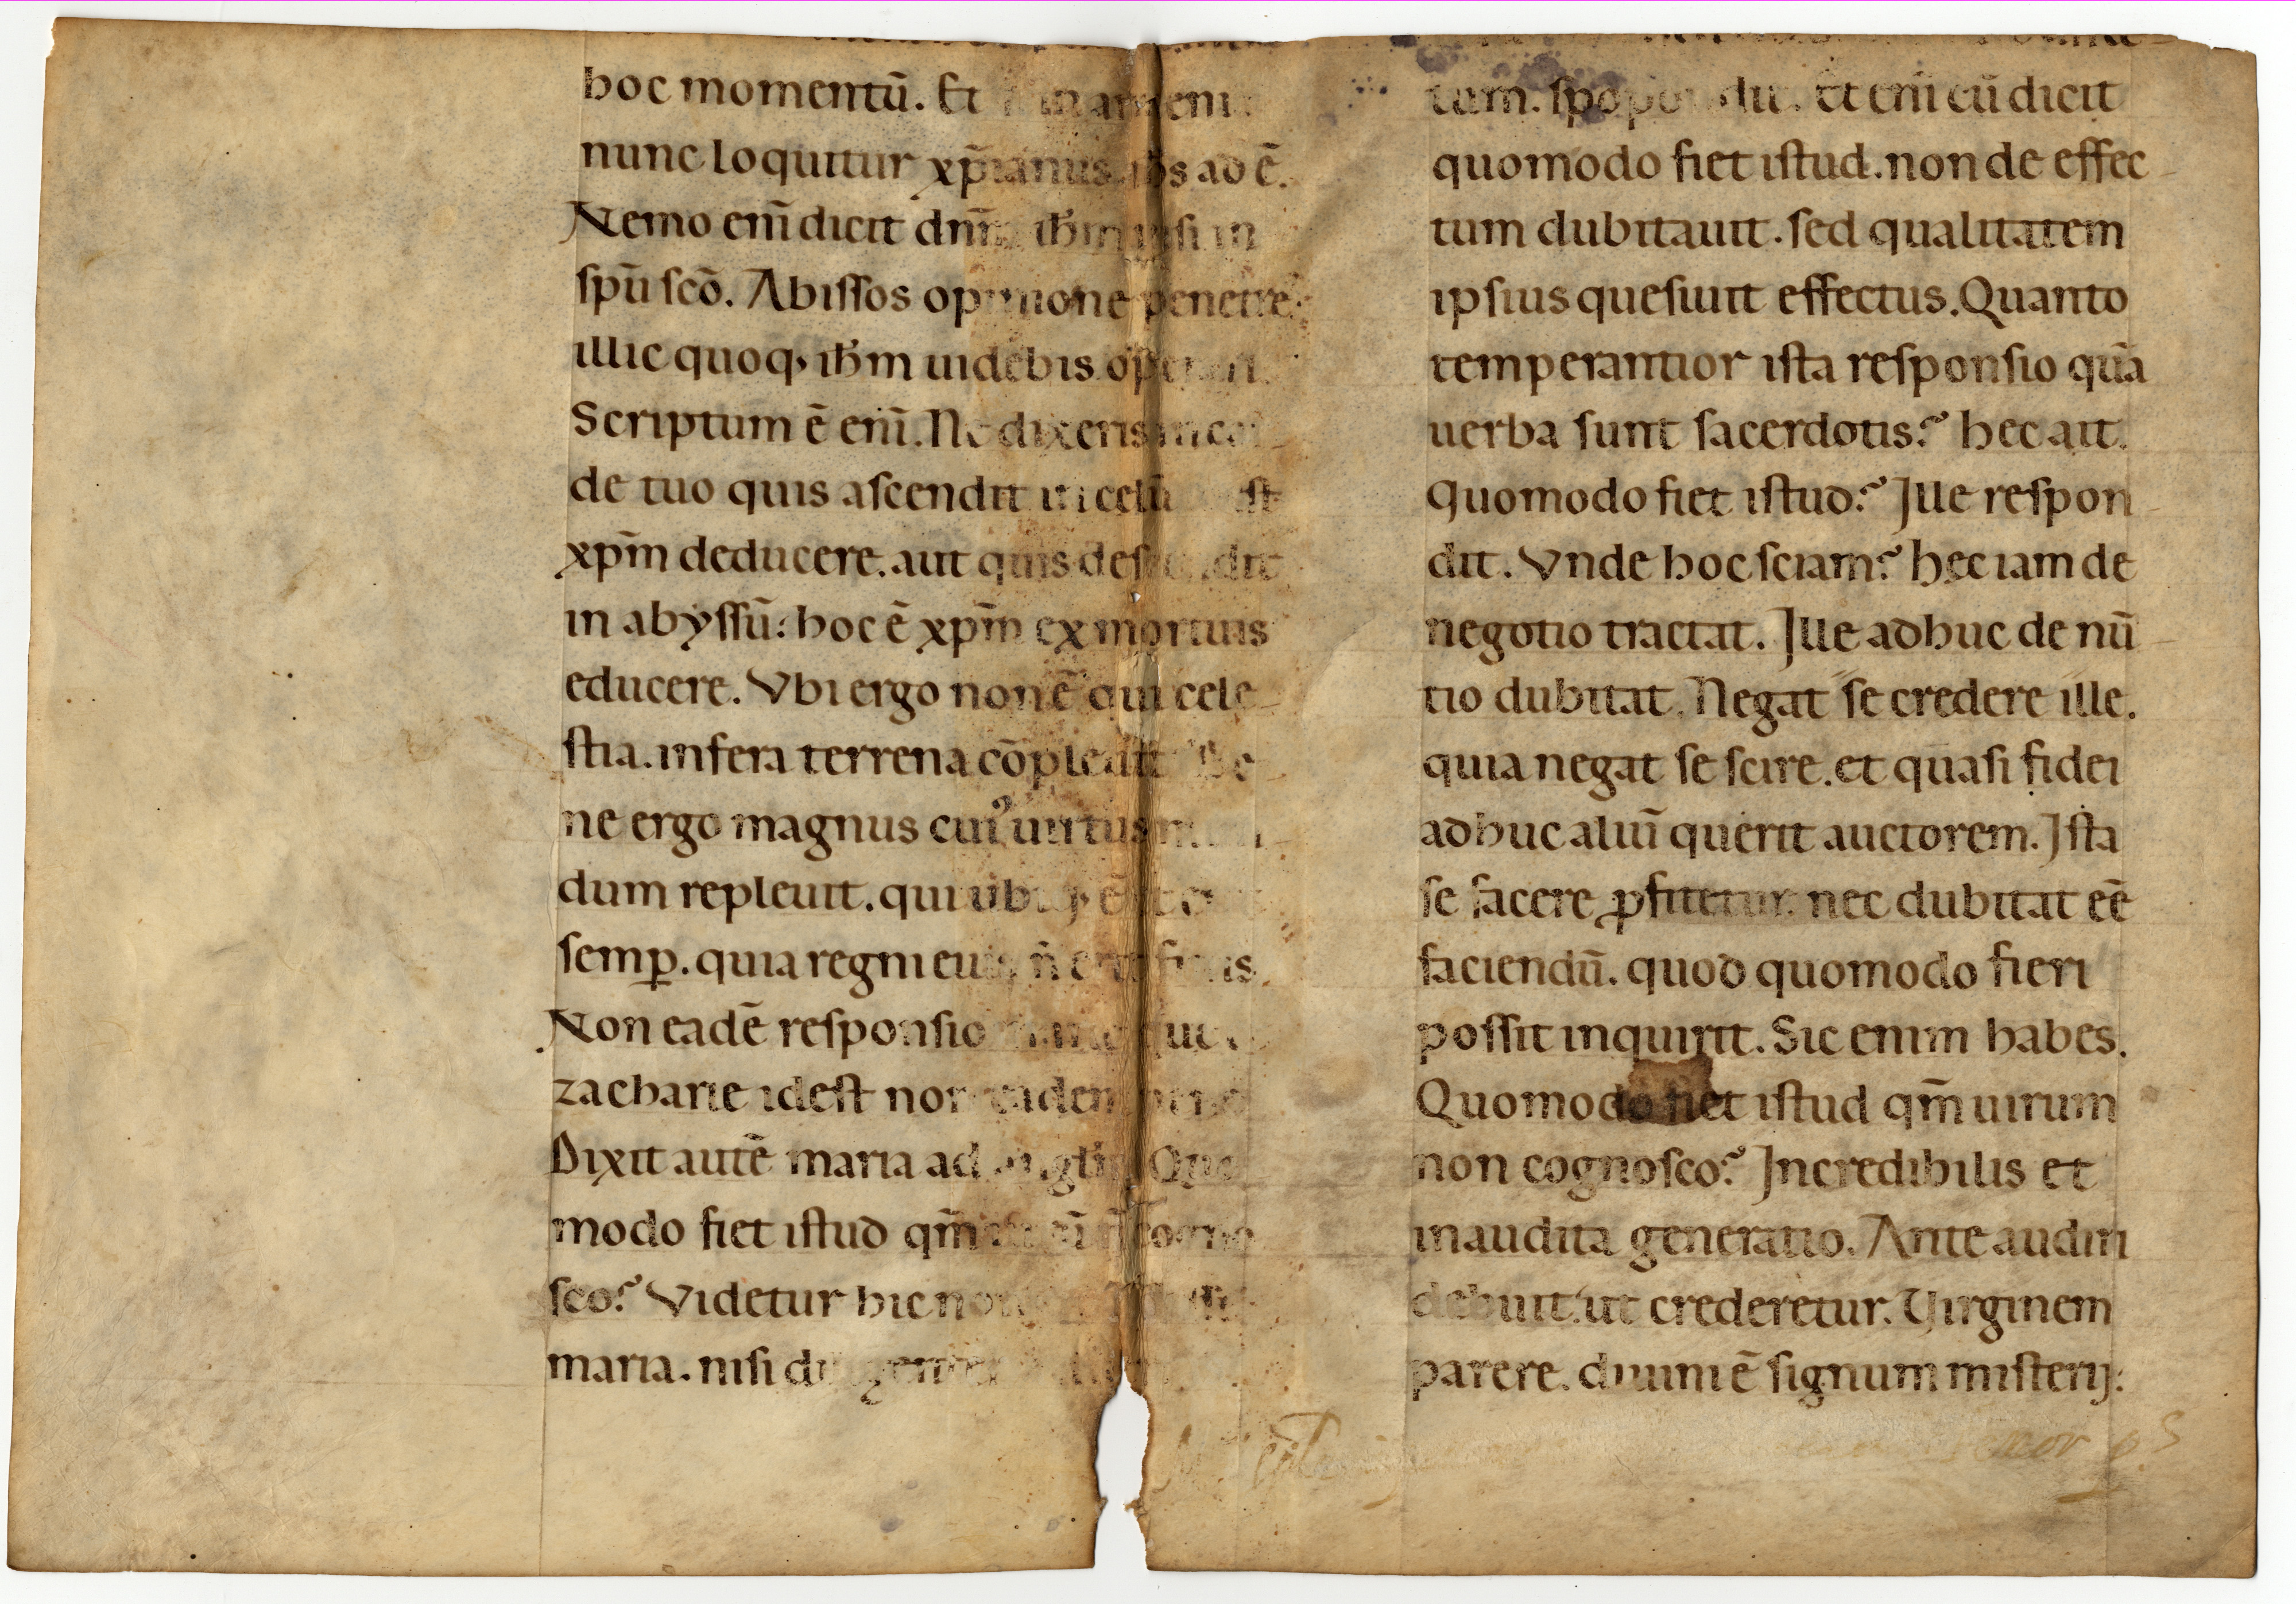 hoc momentū. Et
nunc loquitur xp̄ianus ad ē.
Nemo eni̅ dicit dnm̄ ihm̄ nisi in
spū scō. Abissos opinione penetre
illic quoq; ihm̄ uidebis
Scriptum ē eni̅. Ne dixeris in cor
de tuo quis ascendit in celū
xpm̄ deducere. aut quis descendit
in abyssū: hoc ē xpm̄ ex mortuis
educere. Vbi ergo non ē qui cele
stia. infera terrena cōpleuit
ne ergo magnus cui᾿ uirtus
dum repleuit. qui ubiq;
semꝑ. quia regni eius n̄ erit finis.
Non eadē responsio
zacharie idest non eadem
Dixit autē maria ad Quo
modo fiet istud qm̄ cogno
sco? Videtur hic non
maria. nisi diligenter
tam. spopondit. et eni̅ cū dicit
quomodo fiet istud. non de effec
tum dubitauit. sed qualitatem
ipsius quesiuit effectus. Quanto
temperantior ista responsio qua̅
uerba sunt sacerdotis? hec ait.
Quomodo fiet istud? Ille respon
dit. Vnde hoc sciam? hec iam de
negotio tractat. Ille adhuc de nū
tio dubitat. Negat se credere ille.
quia negat se scire. et quasi fidei
adhuc aliu̅ querit auctorem. Ista
se facere ꝓfitetur. nec dubitat eē
faciendū. quod quomodo fieri
possit inquirit. Sic enim habes.
Quomodo fiet istud qm̄ uirum
non cognosco? Incredibilis et
inaudita generatio. Ante audiri
debuit ut crederetur. Virginem
parere. diuini ē signum misterij: